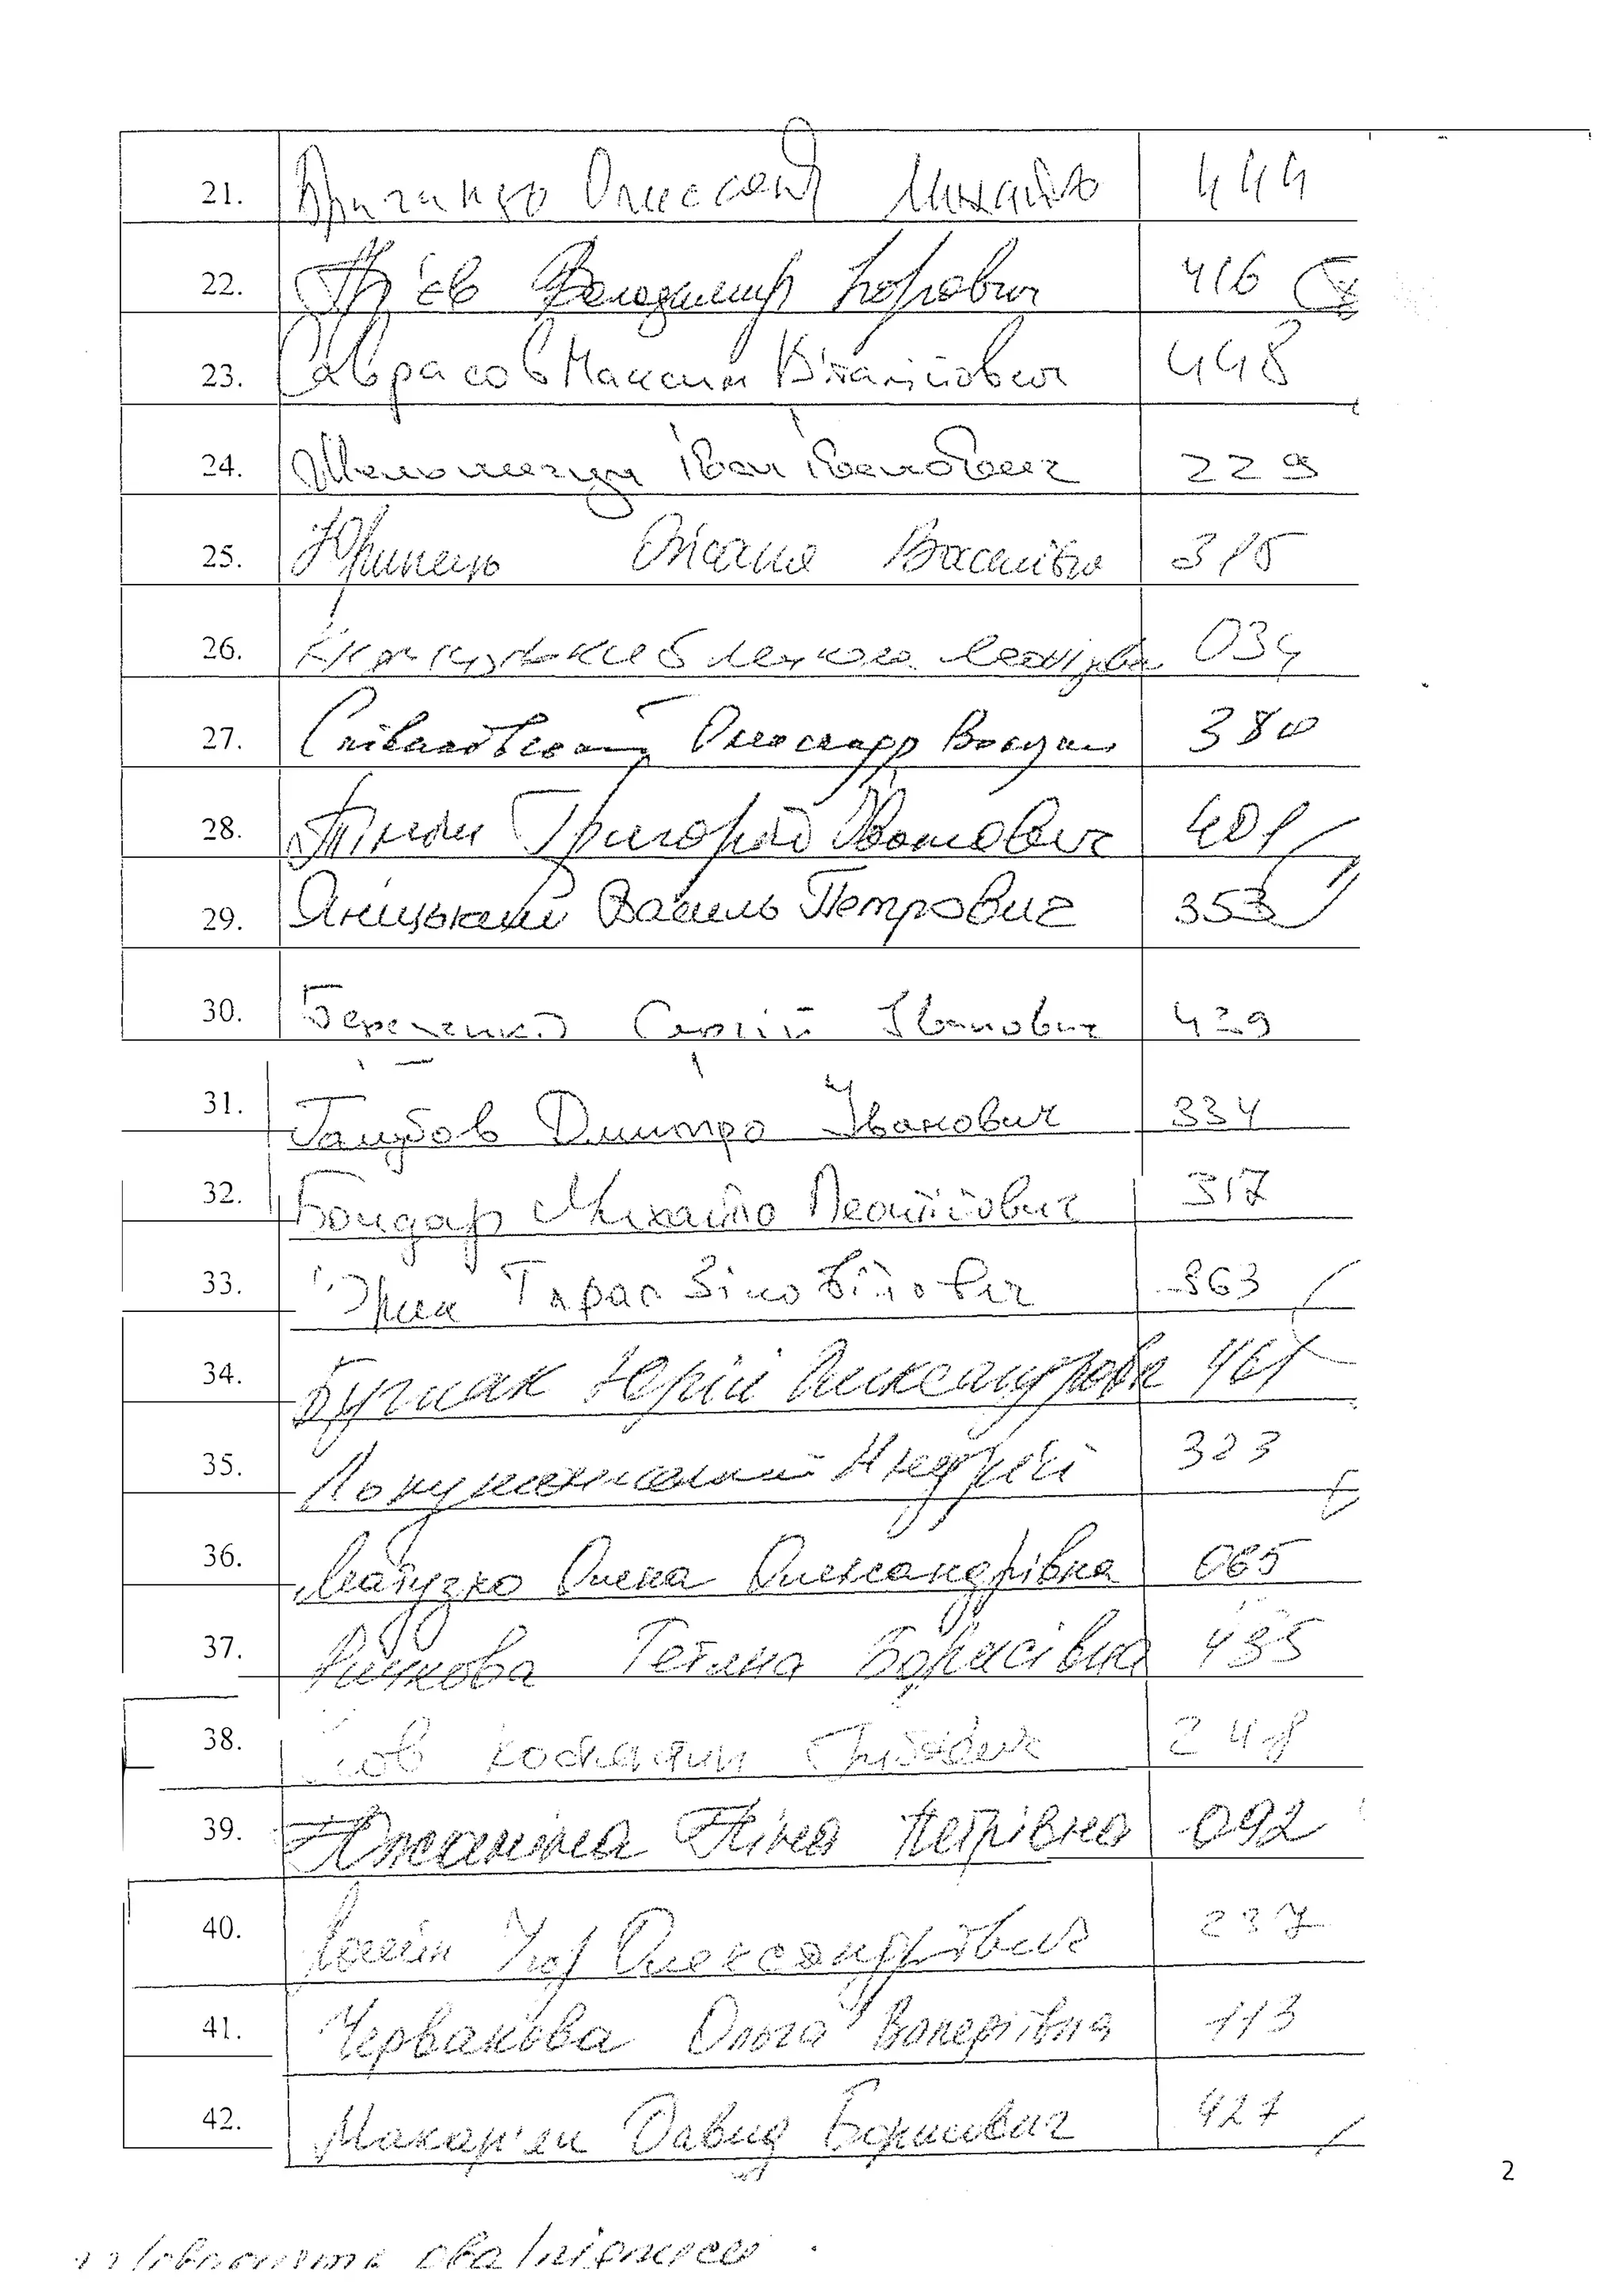 21. Олександр Михайло 444
22. Ар'єв Володимир Ігорович 416
23. Саврасов Максим Віталійович 448
24. Мельничук Іван Іванович 229
25. Юринець Оксана Василівна 315
26. 034
27. Співаковський Олександр Володим 380
28. Тіміш Григорій Іванович 401
29. Яніцький Василь Петрович 353
30. Березенко Сергій Іванович 429
31. Голубов Дмитро Іванович 334
32. Бондар Михайло Леонтійович 317
33. Юрик Тарас Зіновійович 363
34. Бугляк Юрій Олександров 461
35. Лопушанський Андрій 323
36. Мацузко Олена Олександрівна 065
37. Ричкова Тетяна Борисівна 435
38. 248
39. Южаніна Ніна Петрівна 092
40. Ігор Олександрович 237
41. Червакова Ольга Валеріївна 113
42. Макар'ян Давид Борисович 427
2